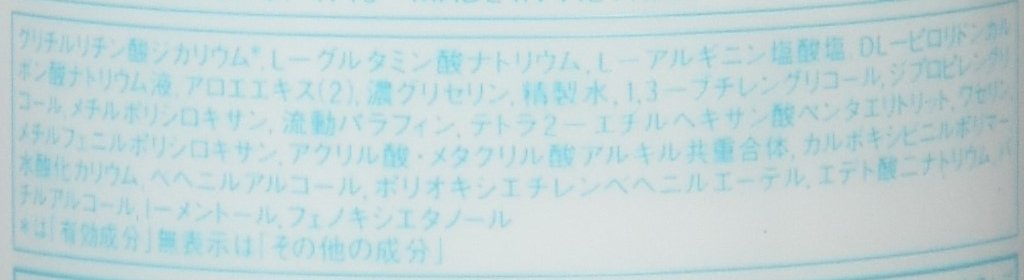 グリチルリチン酸ジカリウム*, L－グルタミン酸ナトリウム, L－アルギニン塩酸塩, DL－ピロリドンカル
ボン酸ナトリウム液, アロエエキス(2), 濃グリセリン, 精製水, 1,3－ブチレングリコール, ジプロピレングリ
コール, メチルポリシロキサン, 流動パラフィン, テトラ2－エチルヘキサン酸ペンタエリトリット, ワセリン,
メチルフェニルポリシロキサン, アクリル酸・メタクリル酸アルキル共重合体, カルボキシビニルポリマー,
水酸化カリウム, ベヘニルアルコール, ポリオキシエチレンベヘニルエーテル, エデト酸二ナトリウム, バ
チルアルコール, l－メントール, フェノキシエタノール
*は「有効成分」無表示は「その他の成分」